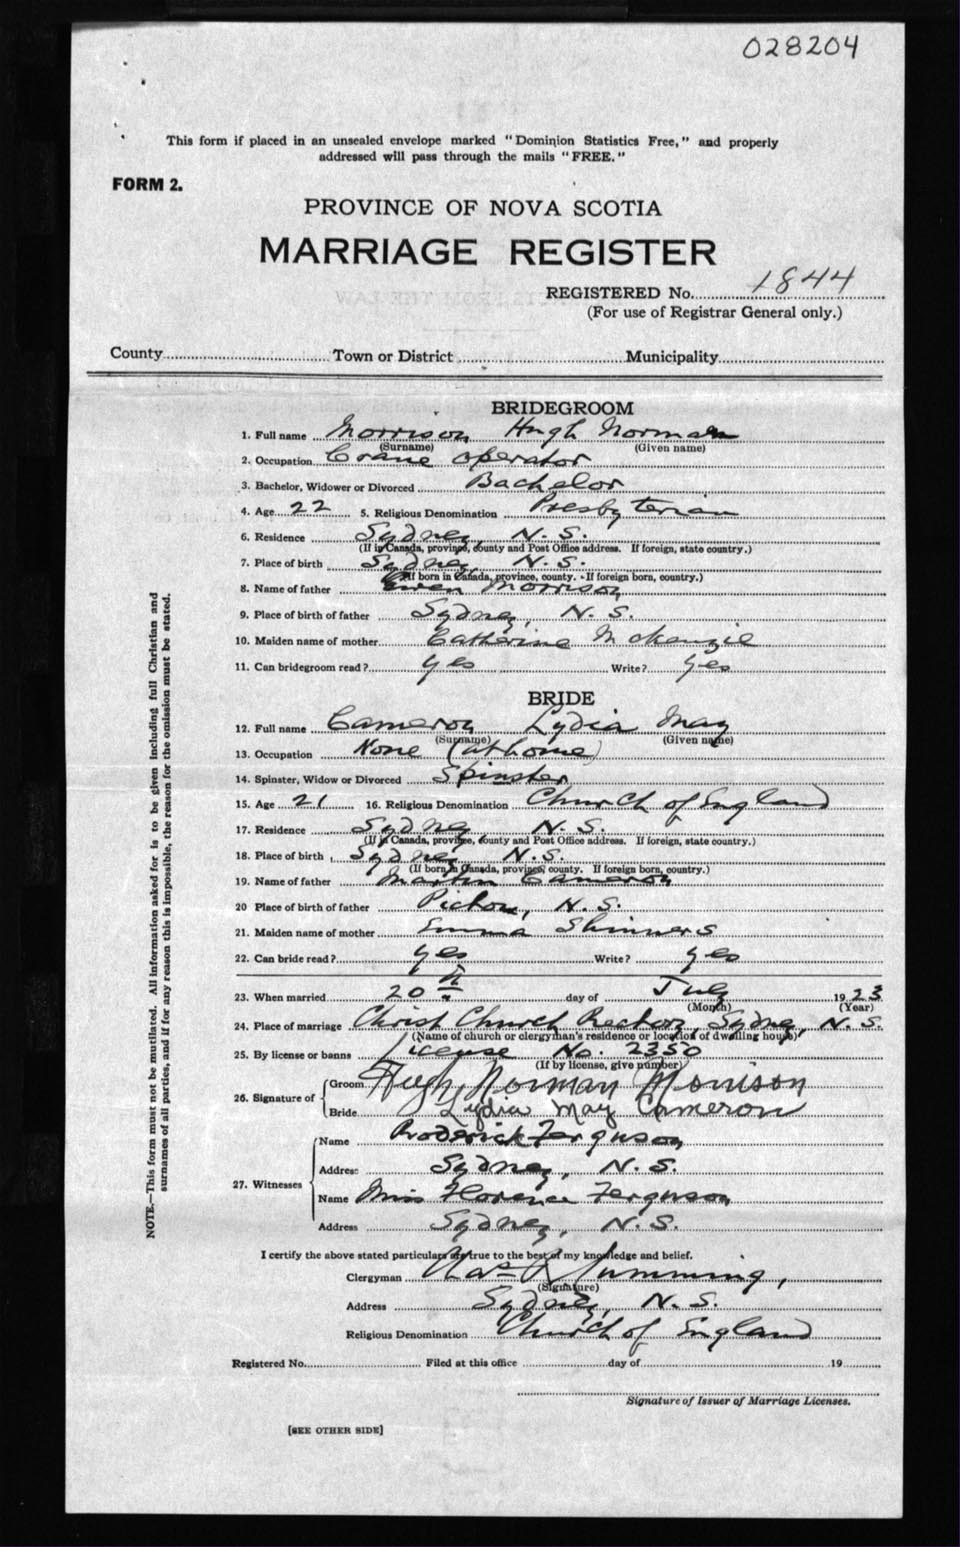 028204
This form if placed in an unsealed envelope marked "Dominion Statistics Free," and properly
addressed will pass through the mails "FREE."
FORM 2.
PROVINCE OF NOVA SCOTIA
MARRIAGE REGISTER
REGISTERED No. 1844
(For use of Registrar General only.)
County Town or District Municipality
BRIDEGROOM
1. Full name Morrison Hugh Norman
(Surname) (Given name)
2. Occupation Crane operator
3. Bachelor, Widower or Divorced Bachelor
4. Age 22 5. Religious Denomination Presbyterian
6. Residence Sydney, N.S.
(If in Canada, province, county and Post Office address. If foreign, state country.)
7. Place of birth Sydney N.S.
(If born in Canada, province, county. - If foreign born, country.)
8. Name of father Ewen Morrison
9. Place of birth of father Sydney, N.S.
10. Maiden name of mother Catherine McKenzie
11. Can bridegroom read? yes Write? yes
BRIDE
12. Full name Cameron Lydia May
(Surname) (Given name)
13. Occupation None (at home)
14. Spinster, Widow or Divorced Spinster
15. Age 21 16. Religious Denomination Church of England
17. Residence Sydney N.S.
(If in Canada, province, county and Post Office address. If foreign, state country.)
18. Place of birth Sydney N.S.
(If born in Canada, province, county. If foreign born, country.)
19. Name of father Martin Cameron
20 Place of birth of father Pictou, N.S.
21. Maiden name of mother Emma Skinners
22. Can bride read? yes Write? yes
23. When married 20th day of July 1923
(Month) (Year)
24. Place of marriage Christ Church Rectory, Sydney, N.S.
(Name of church or clergyman's residence or location of dwelling house)
25. By license or banns License No. 2350
(If by license, give number)
26. Signature of Groom Hugh Norman Morrison
Bride Lydia May Cameron
27. Witnesses Name Roderick Ferguson
Address Sydney, N.S.
Name Miss Florence Ferguson
Address Sydney, N.S.
I certify the above stated particulars are true to the best of my knowledge and belief.
Clergyman Cumming,
(Signature)
Address Sydney, N.S.
Religious Denomination Church of England
Registered No. Filed at this office day of 19
Signature of Issuer of Marriage Licenses.
[SEE OTHER SIDE]
NOTE.—This form must not be mutilated. All information asked for is to be given including full Christian and
surnames of all parties, and if for any reason this is impossible, the reason for the omission must be stated.